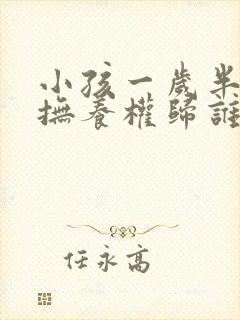 小孩一歲半
撫養權歸誰
任永高